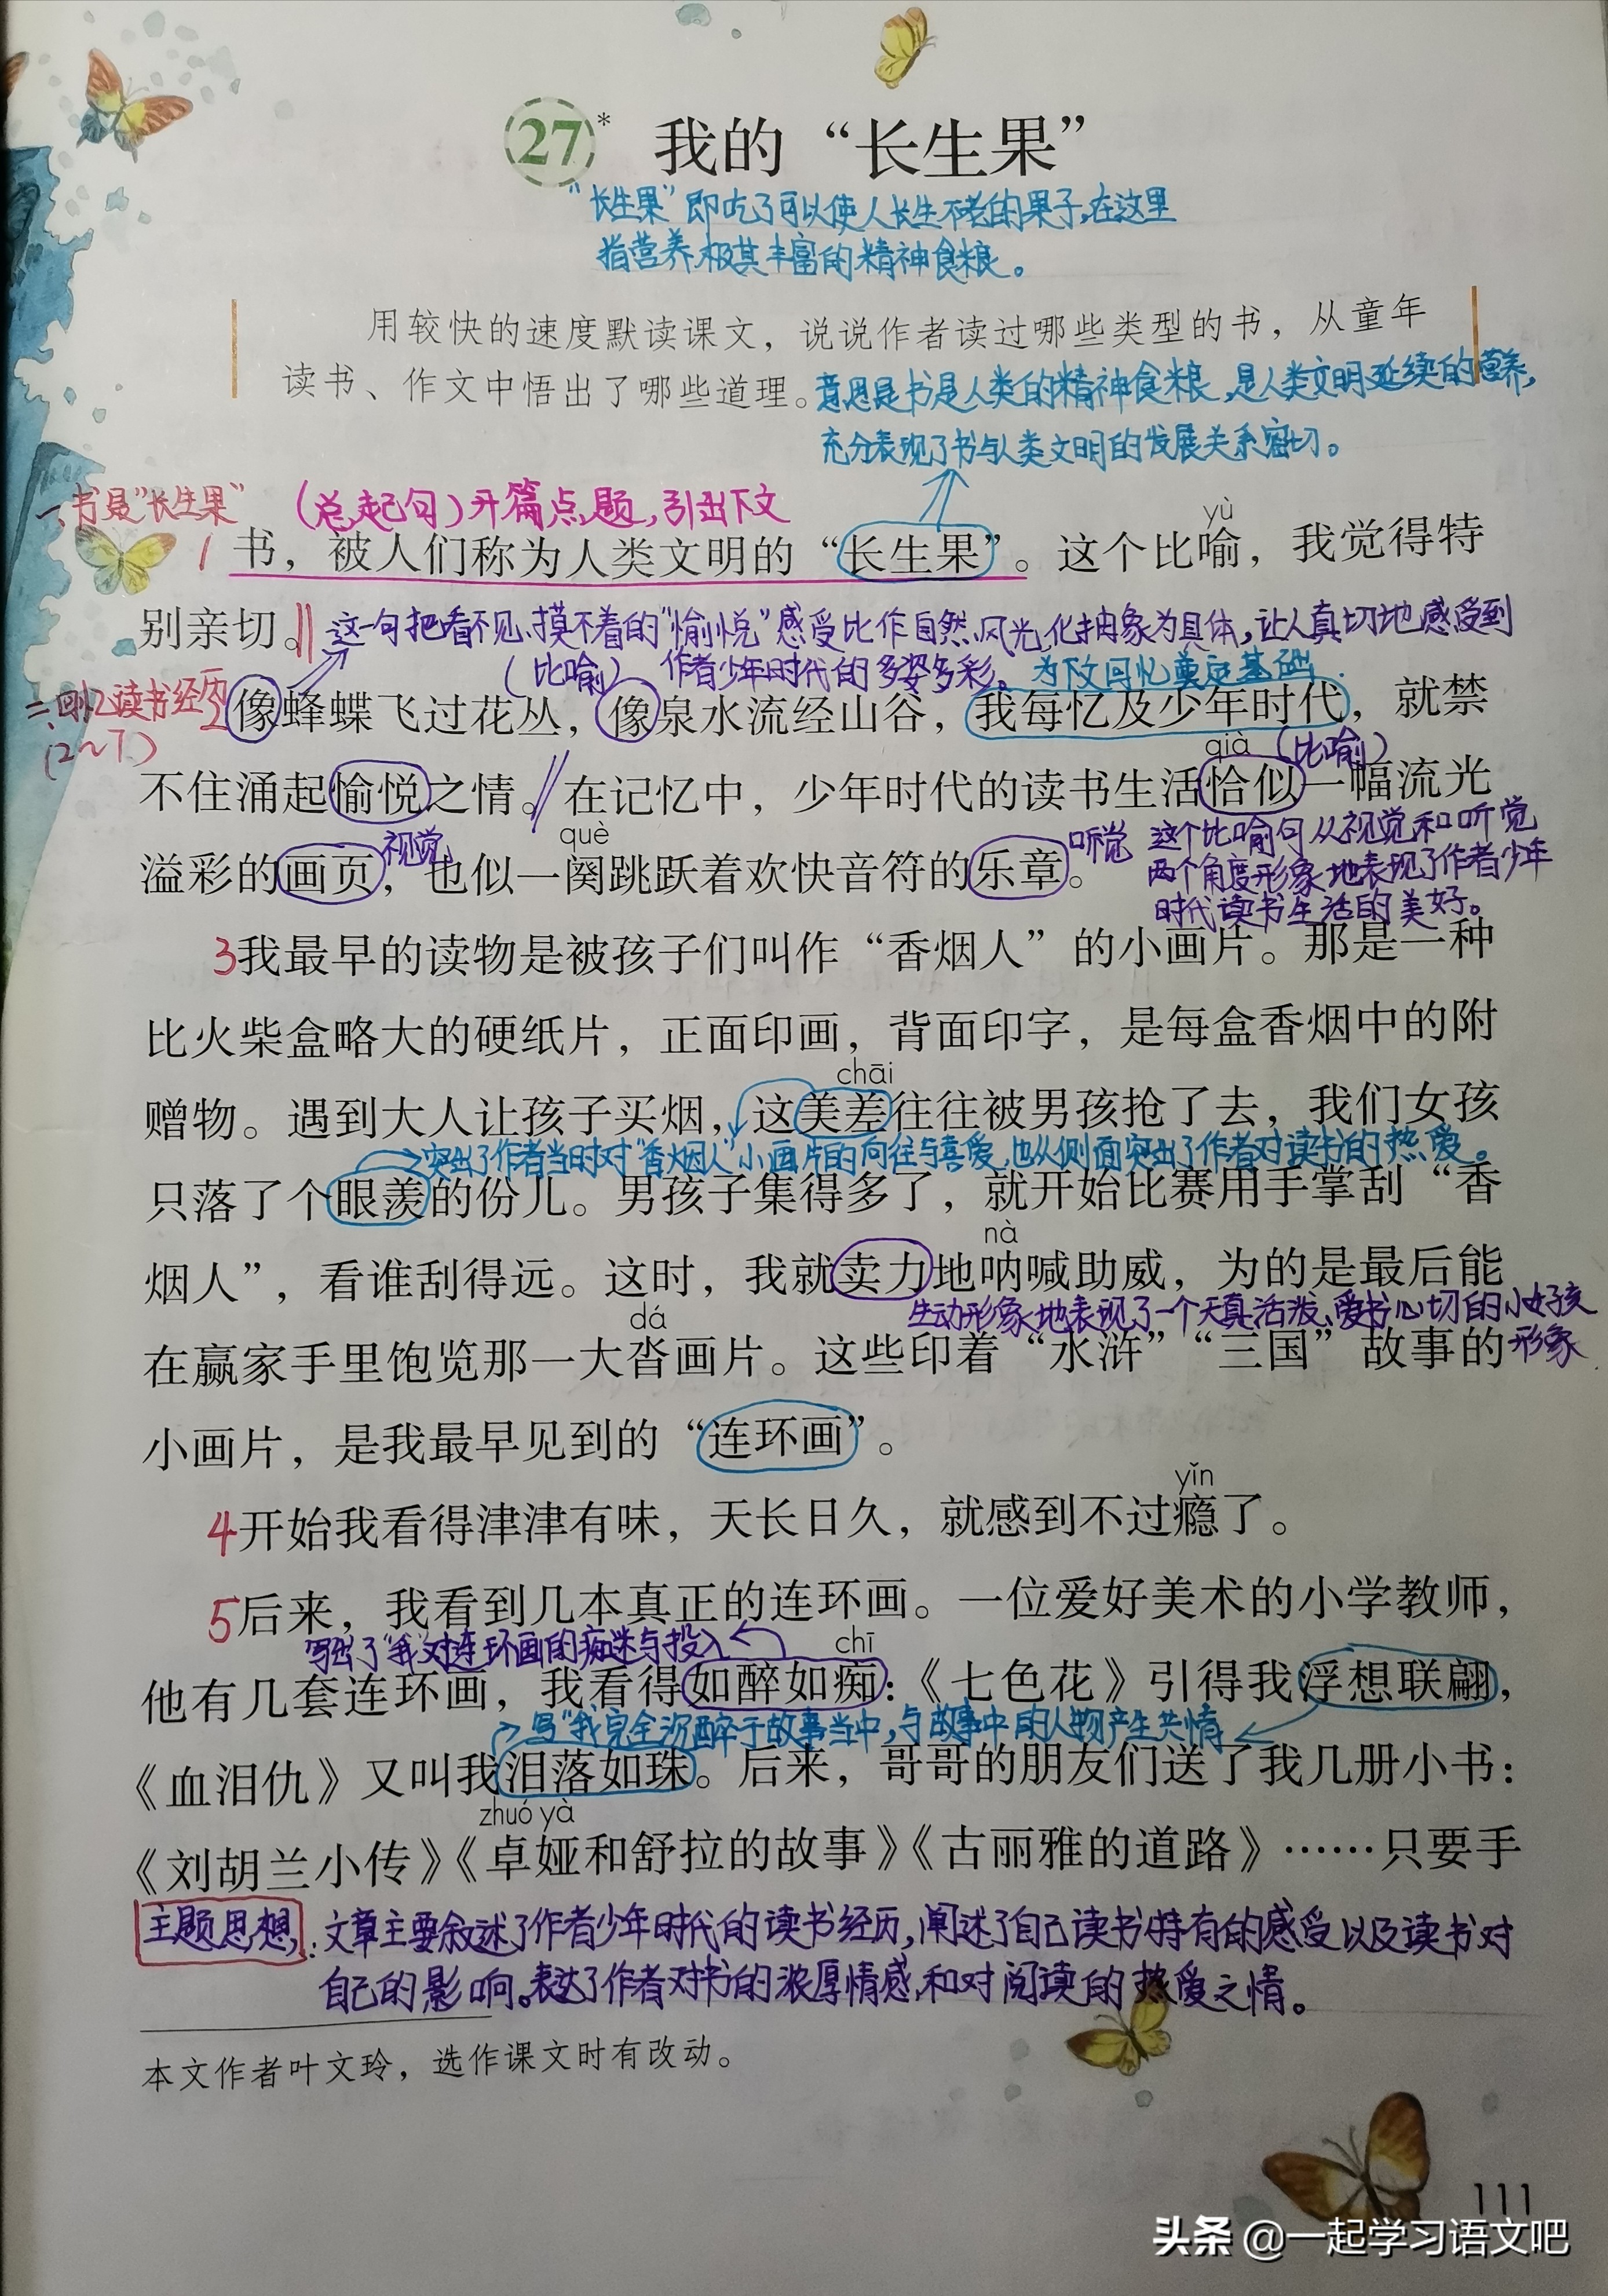 27* 我的“长生果”
“长生果”即吃了可以使人长生不老的果子,在这里
指营养极其丰富的精神食粮。
用较快的速度默读课文，说说作者读过哪些类型的书，从童年
读书、作文中悟出了哪些道理。
意思是书是人类的精神食粮,是人类文明延续的营养,
充分表现了书与人类文明的发展关系密切。
一、书是“长生果”
(总起句)开篇点题,引出下文
yù
1 书，被人们称为人类文明的“长生果”。这个比喻，我觉得特
别亲切。
这一句把看不见、摸不着的“愉悦”感受比作自然风光,化抽象为具体,让人真切地感受到
(比喻) 作者少年时代的多姿多彩。为下文回忆奠定基础.
二、回忆读书经历
(2~7)
2 像蜂蝶飞过花丛，像泉水流经山谷，我每忆及少年时代，就禁
qià (比喻)
不住涌起愉悦之情。在记忆中，少年时代的读书生活恰似一幅流光
què
溢彩的画页，也似一阕跳跃着欢快音符的乐章。
视觉
听觉
这个比喻句从视觉和听觉
两个角度形象地表现了作者少年
时代读书生活的美好。
3我最早的读物是被孩子们叫作“香烟人”的小画片。那是一种
比火柴盒略大的硬纸片，正面印画，背面印字，是每盒香烟中的附
chāi
赠物。遇到大人让孩子买烟，这美差往往被男孩抢了去，我们女孩
突出了作者当时对“香烟人”小画片的向往与喜爱,也从侧面突出了作者对读书的热爱。
只落了个眼羡的份儿。男孩子集得多了，就开始比赛用手掌刮“香
nà
烟人”，看谁刮得远。这时，我就卖力地呐喊助威，为的是最后能
生动形象地表现了一个天真活泼、爱书心切的小女孩
形象
dá
在赢家手里饱览那一大沓画片。这些印着“水浒”“三国”故事的
小画片，是我最早见到的“连环画”。
yǐn
4开始我看得津津有味，天长日久，就感到不过瘾了。
5后来，我看到几本真正的连环画。一位爱好美术的小学教师，
写出了“我”对连环画的痴迷与投入
chī
他有几套连环画，我看得如醉如痴：《七色花》引得我浮想联翩，
写“我”完全沉醉于故事当中,与故事中的人物产生共情
《血泪仇》又叫我泪落如珠。后来，哥哥的朋友们送了我几册小书：
zhuó yà
《刘胡兰小传》《卓娅和舒拉的故事》《古丽雅的道路》……只要手
主题思想:文章主要叙述了作者少年时代的读书经历,阐述了自己读书特有的感受以及读书对
自己的影响。表达了作者对书的浓厚情感,和对阅读的热爱之情。
本文作者叶文玲，选作课文时有改动。
111
头条 @一起学习语文吧